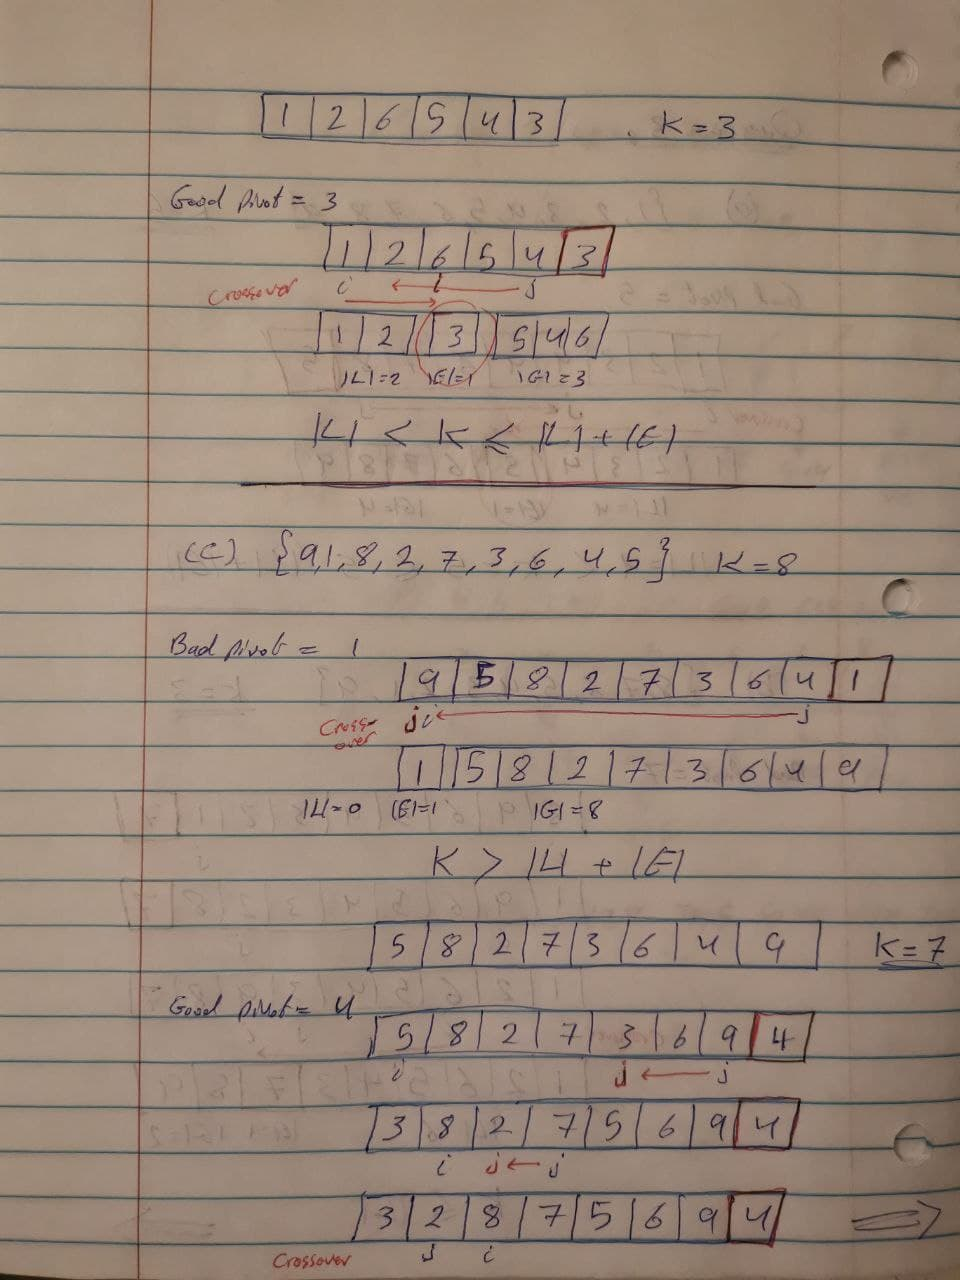 1 2 6 5 4 3 . K = 3
Good pivot = 3
1 2 6 5 4 3
Crossover i i j
1 2 3 5 4 6
|L|=2 |E|=1 |G|=3
|L| < K ≤ |L| + |E|
(C) {9,1,8,2,7,3,6,4,5} K=8
Bad pivot = 1
9 5 8 2 7 3 6 4 1
Cross-over j i j
1 5 8 2 7 3 6 4 9
|L|=0 |E|=1 |G|=8
K > |L| + |E|
5 8 2 7 3 6 4 9 K=7
Good pivot = 4
5 8 2 7 3 6 9 4
i j ← j
3 8 2 7 5 6 9 4
i j ← j
3 2 8 7 5 6 9 4 ⇒
Crossover j i